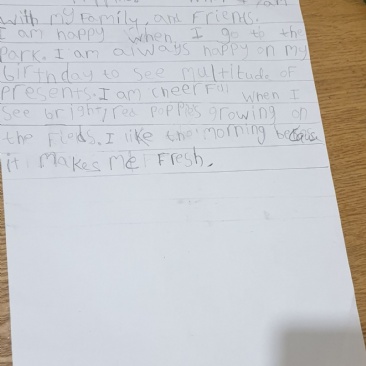 with my Family, and Friends.
I am happy when I go to the
Park. I am always happy on my
birthday to see multitude of
Presents. I am cheerful when I
see bright red poppies growing on
the Fields. I like the morning because
it makes me Fresh.